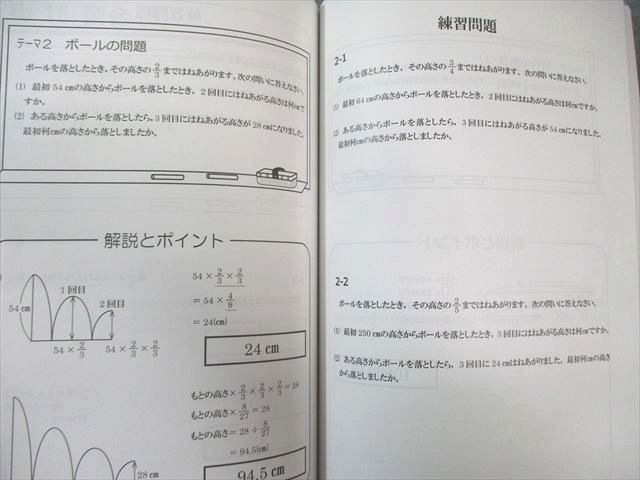 テーマ2 ボールの問題
ボールを落としたとき，その高さの 2/3 まではねあがります。次の問いに答えなさい。
(1) 最初 54 cmの高さからボールを落としたとき，2 回目にはねあがる高さは何cmで
すか。
(2) ある高さからボールを落としたら，3 回目にはねあがる高さが 28 cmになりました。
最初何cmの高さから落としましたか。
解説とポイント
54 cm
1 回目
2 回目
54 × 2/3
54 × 2/3 × 2/3
54 × 2/3 × 2/3
= 54 × 4/9
= 24(cm)
24 cm
28 cm
もとの高さ× 2/3 × 2/3 × 2/3 = 28
もとの高さ× 8/27 = 28
もとの高さ= 28 ÷ 8/27
= 94.5(cm)
94.5 cm
練習問題
2-1
ボールを落としたとき，その高さの 3/4 まではねあがります。次の問いに答えなさい。
(1) 最初 64 cmの高さからボールを落としたとき，2 回目にはねあがる高さは何cmですか。
(2) ある高さからボールを落としたら，3 回目にはねあがる高さが 54 cmになりました。
最初何cmの高さから落としましたか。
2-2
ボールを落としたとき，その高さの 2/5 まではねあがります。次の問いに答えなさい。
(1) 最初 250 cmの高さからボールを落としたとき，3 回目にはねあがる高さは何cmですか。
(2) ある高さからボールを落としたら，3 回目に 24 cmはねあがりました。最初何cmの高さ
から落としましたか。